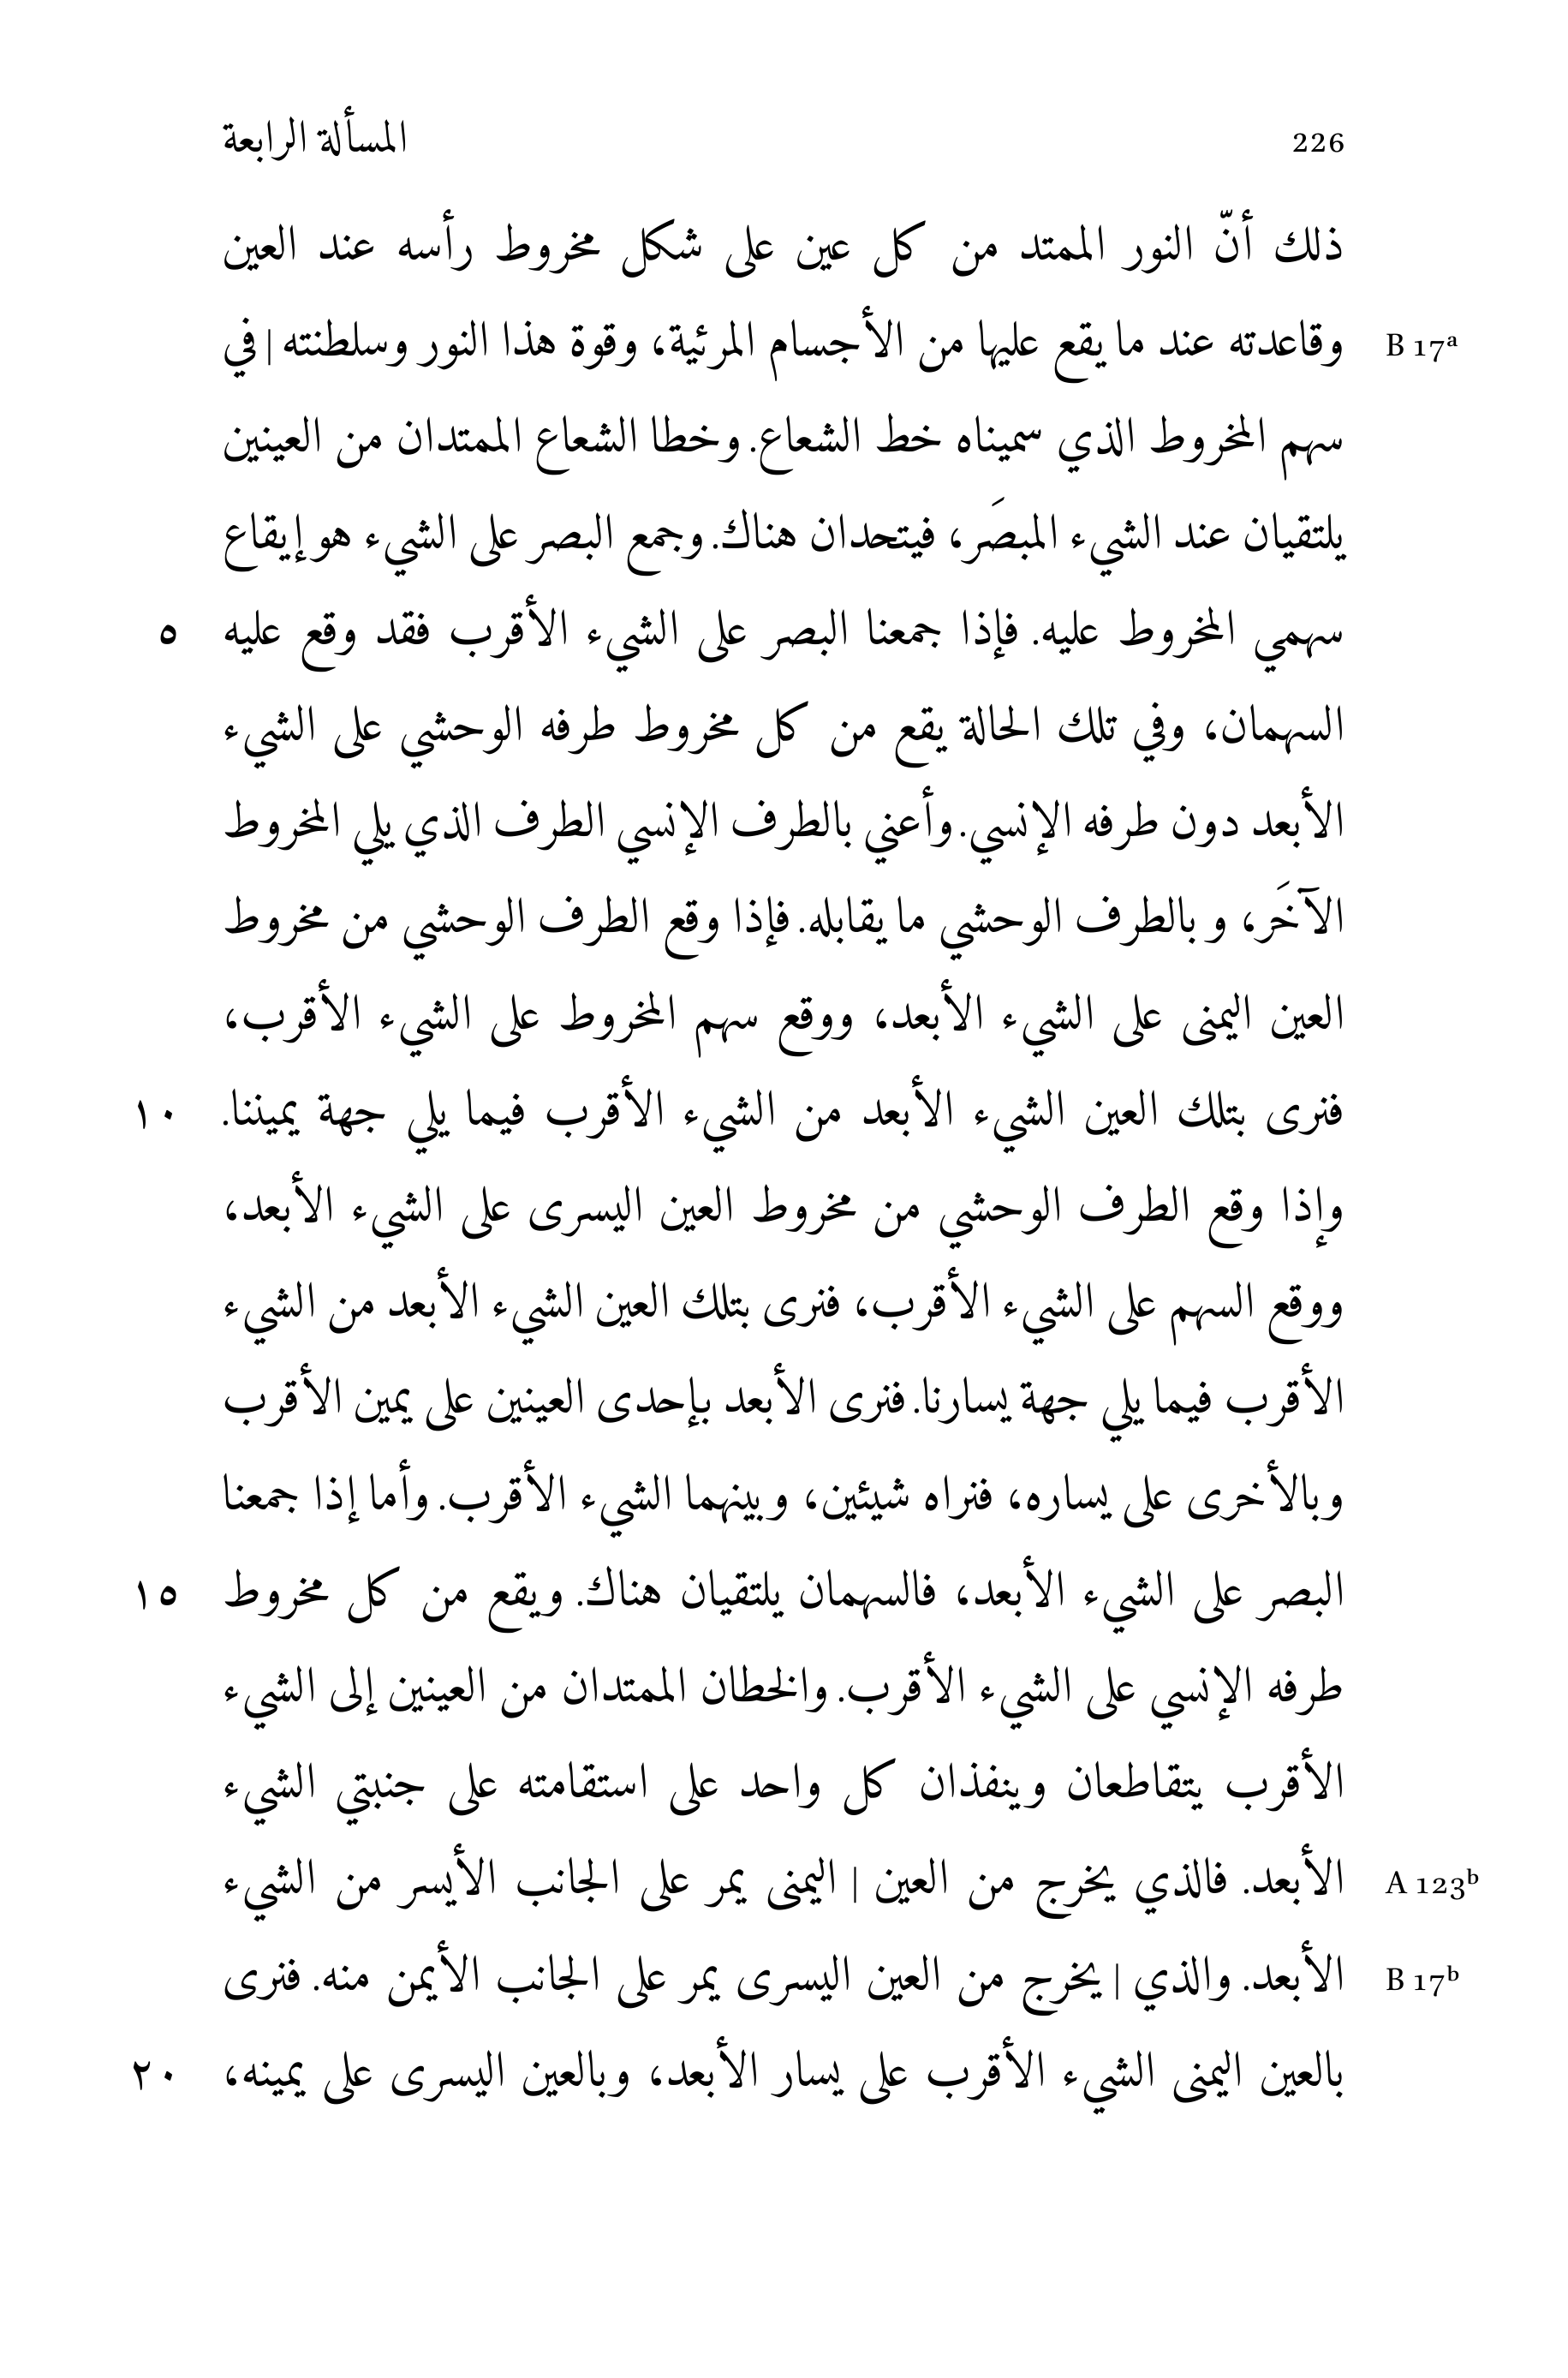 226 المسألة الرابعة
ذلك أنّ النور الممتد من كل عين على شكل مخروط رأسه عند العين
B 17ᵃ وقاعدته عند ما يقع عليها من الأجسام المرئية، وقوة هذا النور وسلطنته | في
سهم المخروط الذي سميناه خط الشعاع. وخطا الشعاع الممتدان من العينين
يلتقيان عند الشيء المبصَر، فيتحدان هناك. وجمع البصر على الشيء هو إيقاع
سهمي المخروط عليه. فإذا جمعنا البصر على الشيء الأقرب فقد وقع عليه ٥
السهمان، وفي تلك الحالة يقع من كل مخروط طرفه الوحشي على الشيء
الأبعد دون طرفه الإنسي. وأعني بالطرف الإنسي الطرف الذي يلي المخروط
الآخَر، وبالطرف الوحشي ما يقابله. فإذا وقع الطرف الوحشي من مخروط
العين اليمنى على الشيء الأبعد، ووقع سهم المخروط على الشيء الأقرب،
فنرى بتلك العين الشيء الأبعد من الشيء الأقرب فيما يلي جهة يميننا. ١٠
وإذا وقع الطرف الوحشي من مخروط العين اليسرى على الشيء الأبعد،
ووقع السهم على الشيء الأقرب، فنرى بتلك العين الشيء الأبعد من الشيء
الأقرب فيما يلي جهة يسارنا. فنرى الأبعد بإحدى العينين على يمين الأقرب
وبالأخرى على يساره، فنراه شيئين، وبينهما الشيء الأقرب. وأما إذا جمعنا
البصر على الشيء الأبعد، فالسهمان يلتقيان هناك. ويقع من كل مخروط ١٥
طرفه الإنسي على الشيء الأقرب. والخطان الممتدان من العينين إلى الشيء
الأقرب يتقاطعان وينفذان كل واحد على استقامته على جنبتي الشيء
A 123ᵇ الأبعد. فالذي يخرج من العين | اليمنى يمر على الجانب الأيسر من الشيء
B 17ᵇ الأبعد. والذي | يخرج من العين اليسرى يمر على الجانب الأيمن منه. فنرى
بالعين اليمنى الشيء الأقرب على يسار الأبعد، وبالعين اليسرى على يمينه، ٢٠